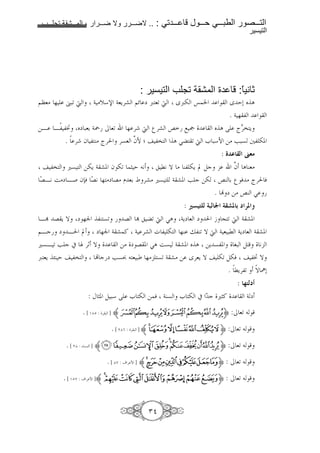 التــصور الطبـــي حـــول قاعــدتي : .. لاضــرر ولا ضــرار .. المــشقة تجلــب التيسير
ثانياً: قاعدة المشقة تجلب التيسير :
هذه إحدى القواعد الخمس الكبرى ، التي تعتبر دعائم الشريعة الإسلامية ، والتي تبنى عليها معظم
القواعد الفقهية .
ويتخرَّج على هذه القاعدة جميع رخص الشرع التي شرعها الله تعالى رحمة بعباده، وتخفيفـاً عـــن
المكلفين لسبب من الأسباب التي تقتضي هذا التخفيف ؛ لأنَّ العسر والحرج منتفيان شرعاً .
معنى القاعدة :
معناها أنَّ الله عز وجل لم يكلفنا ما لا نطيق ، وأنه حيثما تكون المشقة يكن التيسير والتخفيف ،
فالحرج مدفوع بالنص ، لكن جلب المشقة للتيسير مشروط بعدم مصادمتها نصاً فإن صــادمت نــصاً
روعي النص من دونها .
والمراد بالمشقة الجالبة للتيسير :
المشقة التي تتجاوز الحدود العادية، وهي التي تضيق بها الصدور وتستنفد الجهود، ولا يقصد هـــا
المشقة العادية الطبيعية التي لا تنفك عنها التكليفات الشرعية ، كمشقة الجهاد ، وألم الحــدود ورجــم
الزناة وقتل البغاة والمفسدين ، هذه المشقة ليست هي المقصودة من القاعدة ولا أثر لها في جلب تيــسير
ولا تخفيف ، فكل تكليف لا يعرى عن مشقة تستلزمها طبيعته بحسب درجاتها ، والتخفيف حينئذ يعتبر
إهمالاً أو تفريطاً .
أدلتها :
أدلة القاعدة كثيرة جدًّا في الكتاب والسنة ، فمن الكتاب على سبيل المثال :
قوله تعالى: ﴿ يُرِيدُ اللَّهُ بِكُمُ الْيُسْرَ وَلَا يُرِيدُ بِكُمُ الْعُسْرَ ﴾ [البقرة : ١٨٥] .
وقوله تعالى: ﴿ لَا يُكَلِّفُ اللَّهُ نَفْسًا إِلَّا وُسْعَهَا ﴾
وقوله تعالى: ﴿ يُرِيدُ اللَّهُ أَن يُخَفِّفَ عَنكُمْ ۚ وَخُلِقَ الْإِنسَانُ ضَعِيفًا ﴾
وقوله تعالى : ﴿ وَمَا جَعَلَ عَلَيْكُمْ فِي الدِّينِ مِنْ حَرَجٍ ﴾
وقوله تعالى : ﴿ وَيَضَعُ عَنْهُمْ إِصْرَهُمْ وَالْأَغْلَالَ الَّتِي كَانَتْ عَلَيْهِمْ ﴾
٣٤